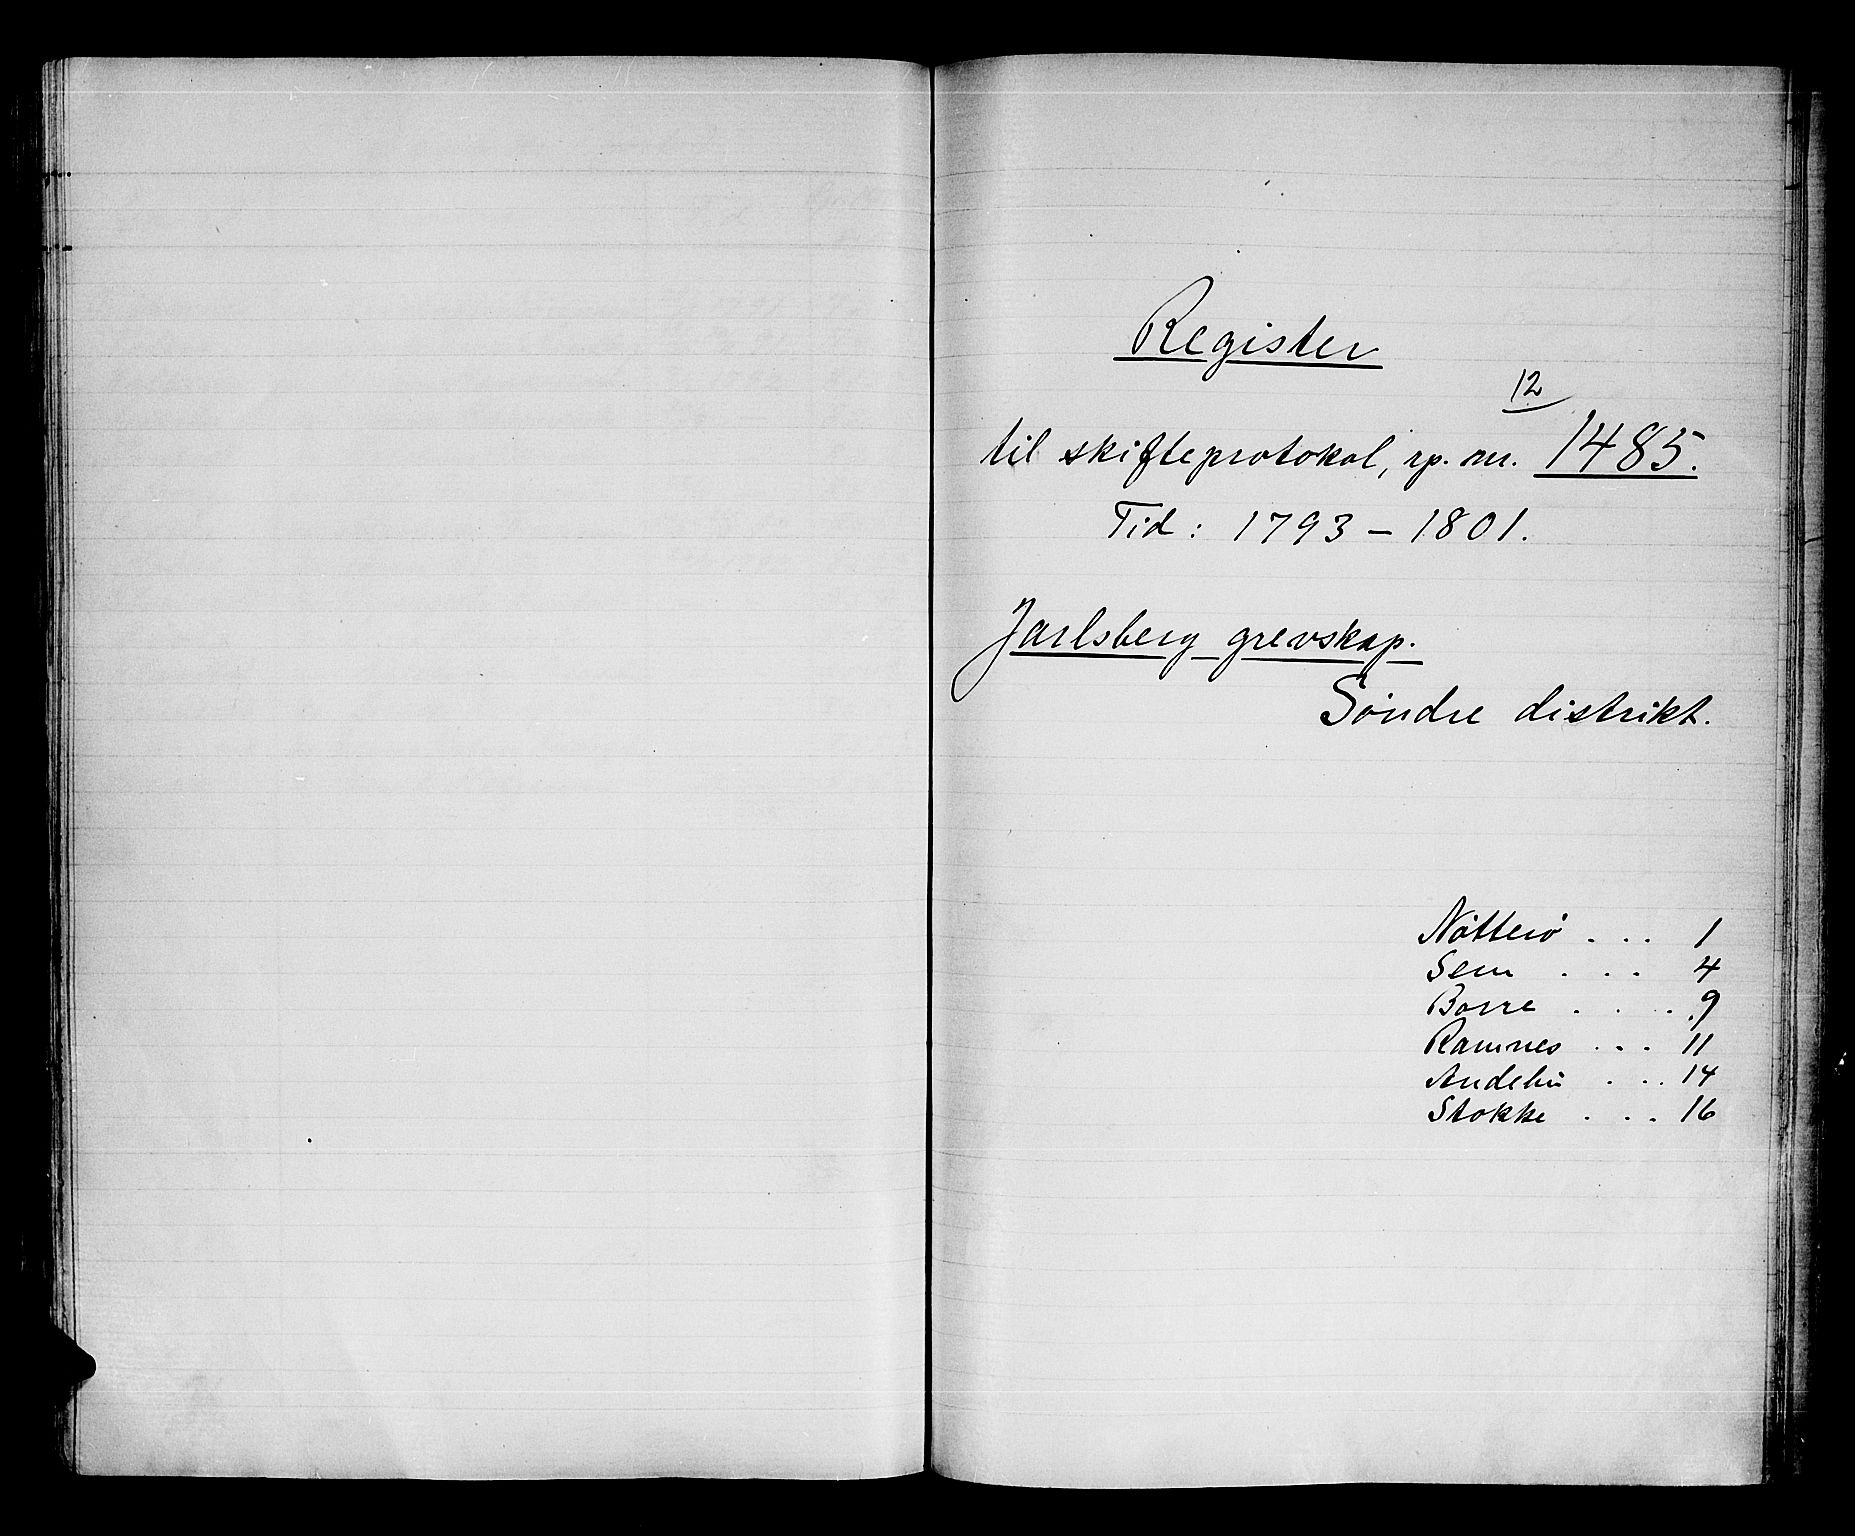 Register
12
til skifteprotokol, rp. nr. 1485.
Tid: 1793 – 1801.
Jarlsberg grevskap.
Søndre distrikt.
Nøtterø . . . 1
Sem . . . 4
Borre . . . . 9
Ramnes . . . 11
Andebu . . . 14
Stokke . . . 16